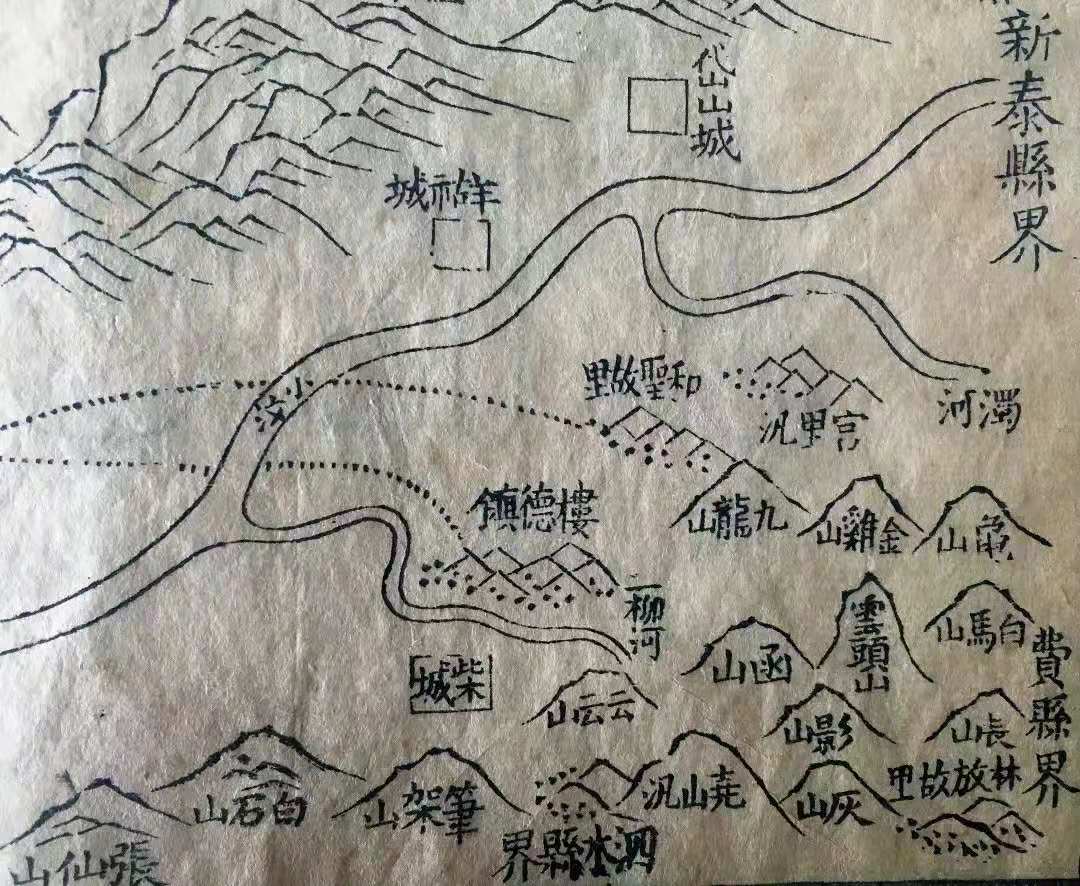 新泰縣界
岱山城
羊祜城
小汶
濁河
和聖故里
宮里汎
樓德鎮
九龍山
金雞山
龜山
二柳河
雲頭山
白馬山
函山
費縣界
柴城
云云山
影山
長山
林放故里
白石山
筆架山
堯山汎
灰山
泗水縣界
張仙山